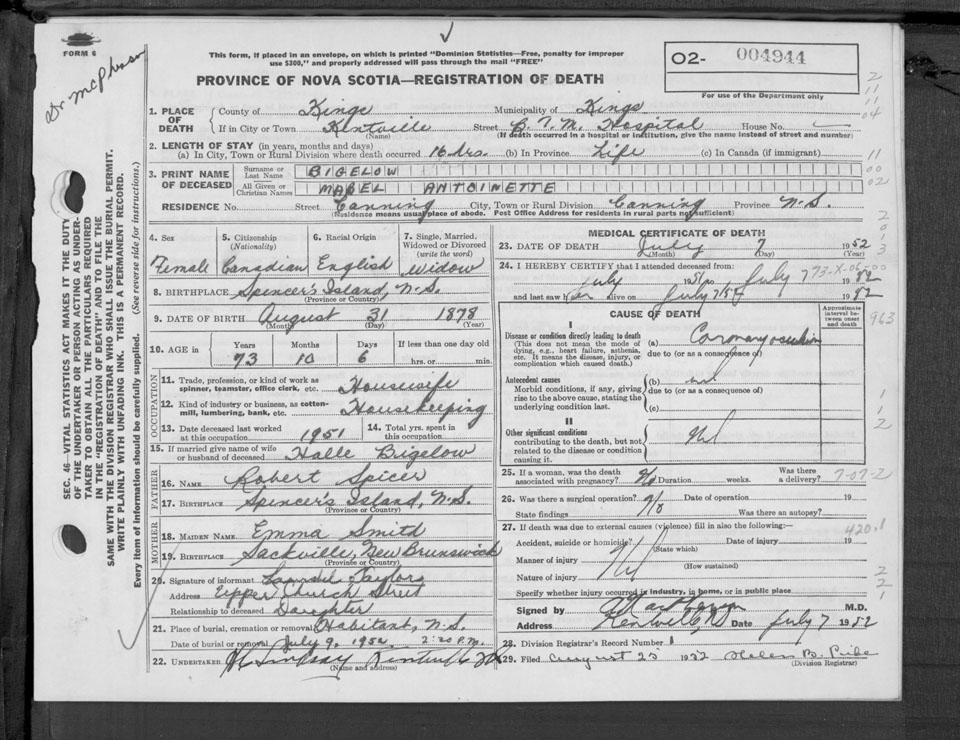 FORM 6
Dr McPherson
This form, if placed in an envelope, on which is printed "Dominion Statistics—Free, penalty for improper
use $300," and properly addressed will pass through the mail "FREE"
PROVINCE OF NOVA SCOTIA—REGISTRATION OF DEATH
O2- 004944
For use of the Department only
SEC. 46—VITAL STATISTICS ACT MAKES IT THE DUTY
OF THE UNDERTAKER OR PERSON ACTING AS UNDER-
TAKER TO OBTAIN ALL THE PARTICULARS REQUIRED
IN THE "REGISTRATION OF DEATH" AND TO FILE THE
SAME WITH THE DIVISION REGISTRAR WHO SHALL ISSUE THE BURIAL PERMIT.
WRITE PLAINLY WITH UNFADING INK. THIS IS A PERMANENT RECORD.
Every item of information should be carefully supplied. (See reverse side for instructions.)
1. PLACE OF DEATH County of Kings Municipality of Kings
If in City or Town Kentville Street B.F.M. Hospital House No.
(Name) (If death occurred in a hospital or institution, give the name instead of street and number)
2. LENGTH OF STAY (in years, months and days)
(a) In City, Town or Rural Division where death occurred 16 hrs. (b) In Province Life (c) In Canada (if immigrant)
3. PRINT NAME OF DECEASED Surname or Last Name BIGELOW
All Given or Christian Names MABEL ANTOINETTE
RESIDENCE No. Street Canning City, Town or Rural Division Canning Province N.S.
(Residence means usual place of abode. Post Office Address for residents in rural parts not sufficient)
4. Sex 5. Citizenship (Nationality) 6. Racial Origin 7. Single, Married, Widowed or Divorced (write the word)
Female Canadian English Widow
8. BIRTHPLACE Spencer's Island, N.S.
(Province or Country)
9. DATE OF BIRTH August 31 1878
(Month) (Day) (Year)
10. AGE in Years Months Days If less than one day old
73 10 6 hrs. or min.
OCCUPATION
11. Trade, profession, or kind of work as spinner, teamster, office clerk, etc. Housewife
12. Kind of industry or business, as cotton-mill, lumbering, bank, etc. Housekeeping
13. Date deceased last worked at this occupation 1951 14. Total yrs. spent in this occupation
15. If married give name of wife or husband of deceased Halle Bigelow
FATHER
16. NAME Robert Spicer
17. BIRTHPLACE Spencer's Island, N.S.
(Province or Country)
MOTHER
18. MAIDEN NAME Emma Smith
19. BIRTHPLACE Sackville, New Brunswick
(Province or Country)
20. Signature of informant Taylor
Address Upper Church Street
Relationship to deceased Daughter
21. Place of burial, cremation or removal Habitant, N.S.
Date of burial or removal July 9, 1952 2:30 P.M.
22. UNDERTAKER Lindsay Kentville N.S.
(Name and address)
MEDICAL CERTIFICATE OF DEATH
23. DATE OF DEATH July 7 1952
(Month) (Day) (Year)
24. I HEREBY CERTIFY that I attended deceased from:
July to July 7 1952
and last saw her alive on July 7 1952
CAUSE OF DEATH Approximate interval between onset and death
I
Disease or condition directly leading to death
(This does not mean the mode of dying, e.g., heart failure, asthenia, etc. It means the disease, injury, or complication which caused death.)
(a) Coronary occlusion
due to (or as a consequence of)
Antecedent causes
Morbid conditions, if any, giving rise to the above cause, stating the underlying condition last.
(b)
due to (or as a consequence of)
(c)
II
Other significant conditions
contributing to the death, but not related to the disease or condition causing it.
Nil
25. If a woman, was the death associated with pregnancy? No Duration weeks. Was there a delivery?
26. Was there a surgical operation? No Date of operation 19
State findings Was there an autopsy?
27. If death was due to external causes (violence) fill in also the following:—
Accident, suicide or homicide? Date of injury 19
(State which)
Manner of injury Nil
(How sustained)
Nature of injury
Specify whether injury occurred in industry, in home, or in public place
Signed by M.D.
Address Kentville, N.S. Date July 7 1952
28. Division Registrar's Record Number 1
29. Filed August 25 1952 Helen B.
(Division Registrar)
963
7-07-2
420.1